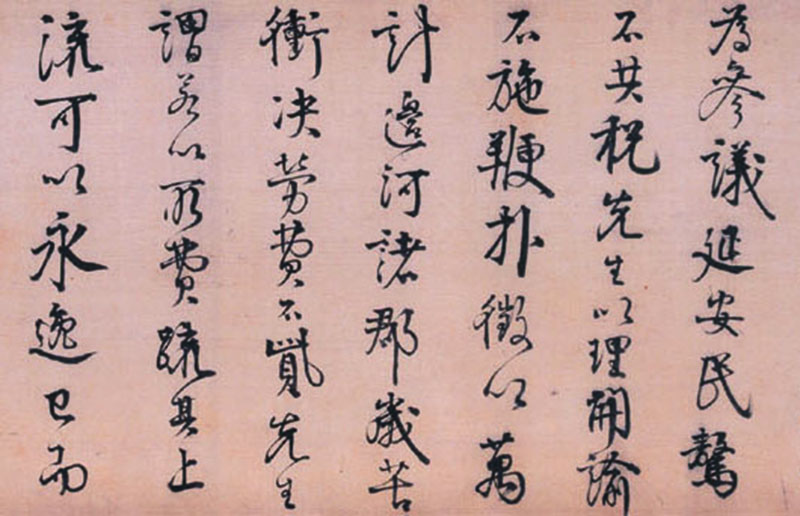 為參議延安民驁
不共税先生以理開諭
不施鞭扑徵以萬
計邊河諸郡歲苦
衝决勞費不貲先生
謂若以所費疏其上
流可以永逸已而